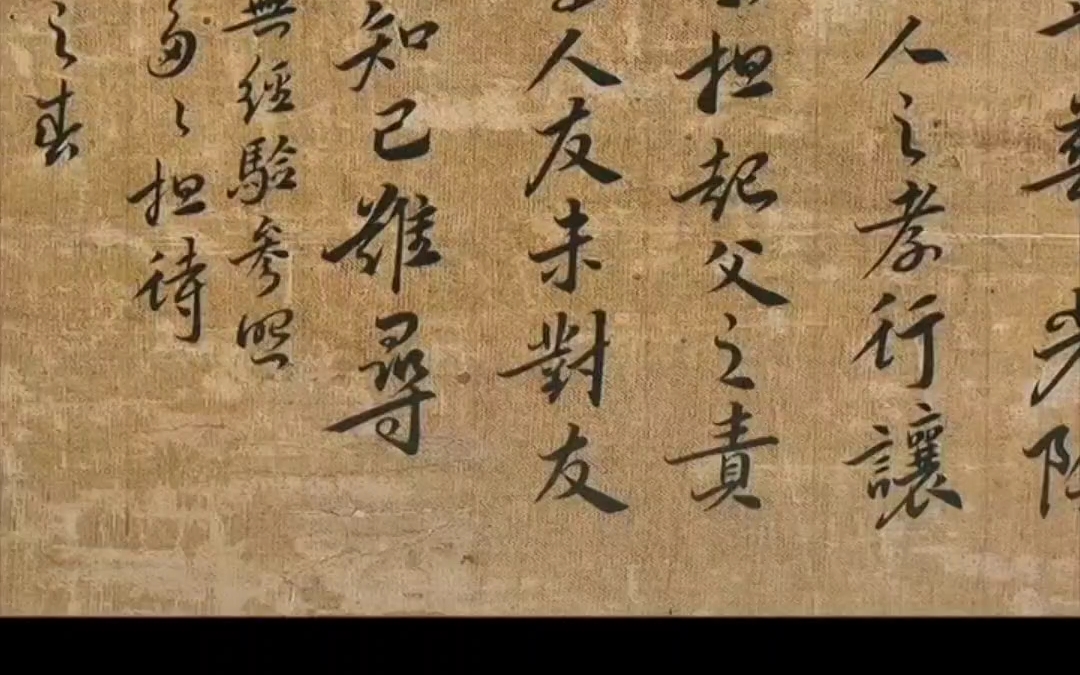 人之孝行讓
担起父之責
人友未對友
知己難尋
無經驗參照
多多担待
之春